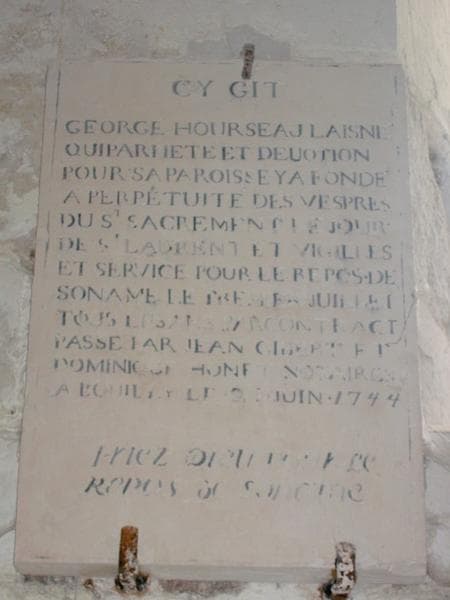 CY GIT
GEORGE HOURSEAJ LAISNE
QUI PAR HETE ET DEUOTION
POUR SA PAROISSE Y A FONDE
A PERPÉTUITE DES VESPRES
DU ST SACREMENT LE JOUR
DE ST LAURENT ET VIGILLES
ET SERVICE POUR LE REPOS DE
SON AME LE JUILLET
TOUS LES ANS PAR CONTRACT
PASSE PAR JEAN ET
DOMINIQUE NOTAIRES
A LE JUIN 1744
PRIEZ DIEU POUR LE
REPOS DE SON AME